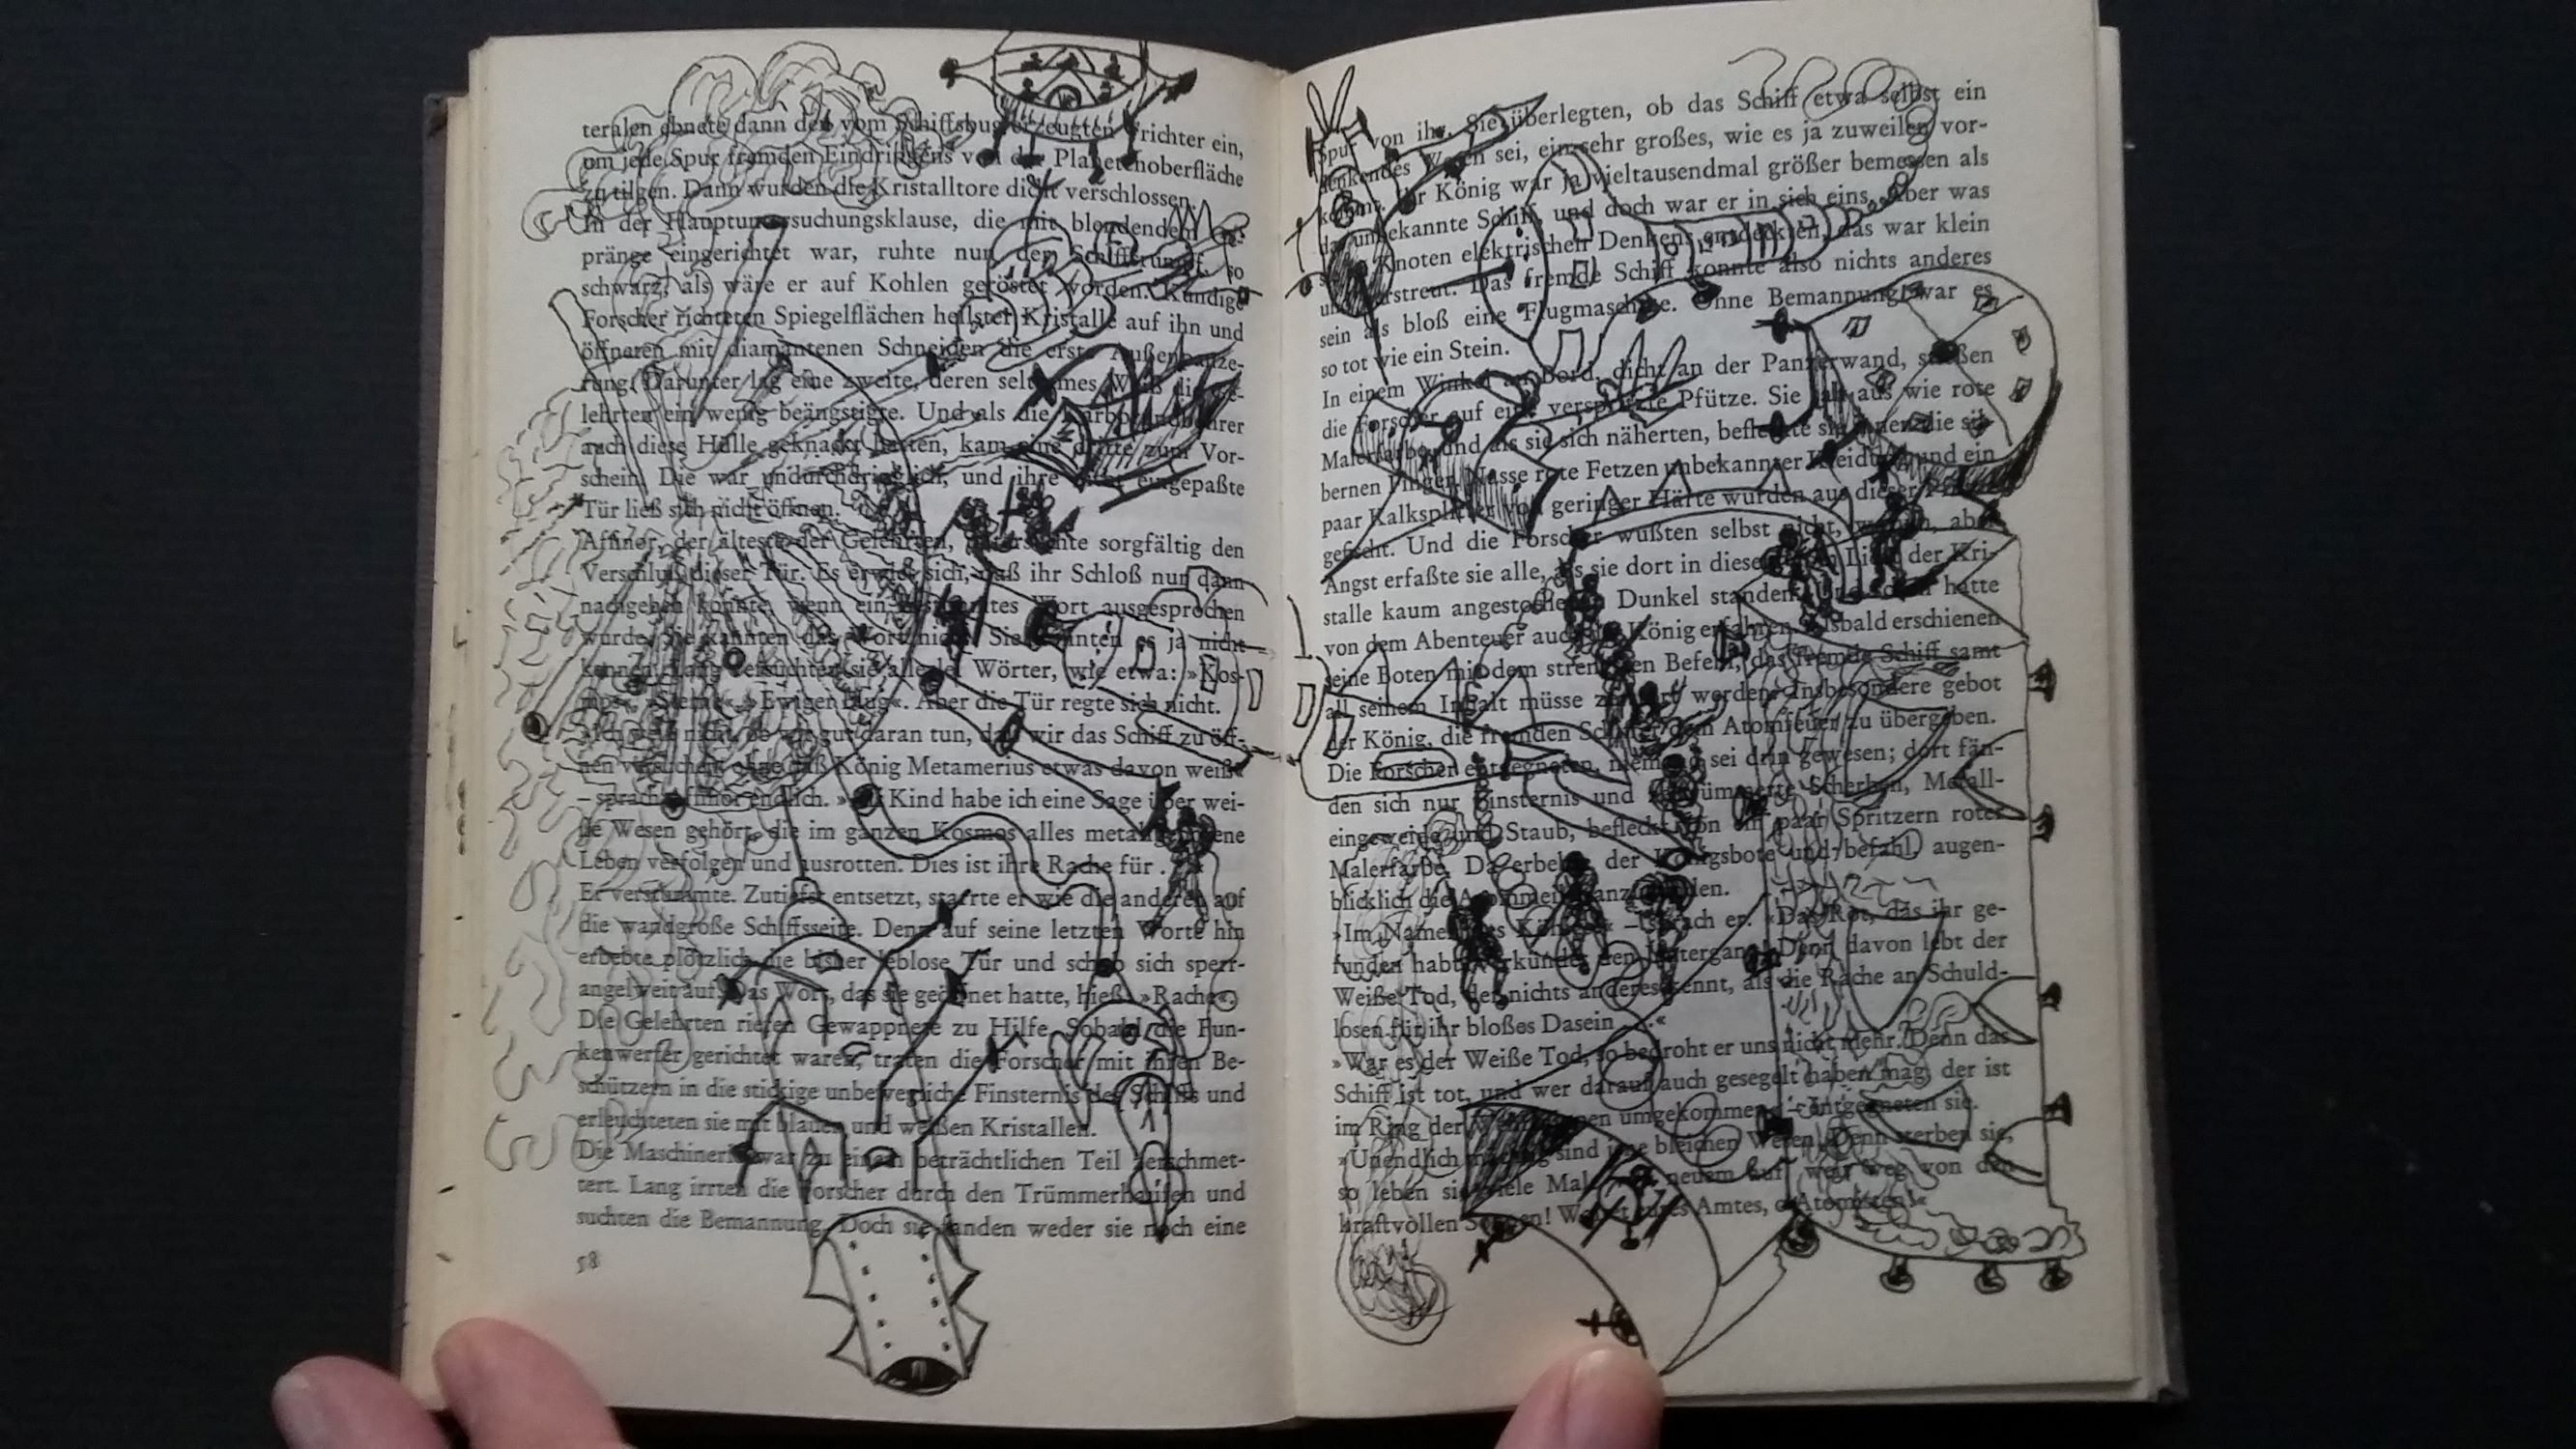 teralen ebnete dann den vom Schiffsbug erzeugten Trichter ein,
um jede Spur fremden Eindringens von der Planetenoberfläche
zu tilgen. Dann wurden die Kristalltore dicht verschlossen.
In der Hauptuntersuchungsklause, die mit blendendem
pränge eingerichtet war, ruhte nun der Schiffsrumpf, so
schwarz, als wäre er auf Kohlen geröstet worden. Kundige
Forscher richteten Spiegelflächen hellster Kristalle auf ihn und
öffneten mit diamantenen Schneiden die erste Außenpanze-
rung. Darunter lag eine zweite, deren seltsames Weiß die Ge-
lehrten ein wenig beängstigte. Und als die Karborundbohrer
auch diese Hülle geknackt hatten, kam eine dritte zum Vor-
schein. Die war undurchdringlich, und ihre eingepaßte
Tür ließ sich nicht öffnen.
Affinor, der älteste der Gelehrten, untersuchte sorgfältig den
Verschluß dieser Tür. Es erwies sich, daß ihr Schloß nur dann
nachgeben konnte, wenn ein bestimmtes Wort ausgesprochen
wurde. Sie kannten das Wort nicht. Sie konnten es ja nicht
kennen. Lang versuchten sie allerlei Wörter, wie etwa: »Kos-
mos«, »Sterne«, »Ewigen Flug«. Aber die Tür regte sich nicht.
»Ich weiß nicht, ob wir gut daran tun, daß wir das Schiff zu öff-
nen versuchen, ohne daß König Metamerius etwas davon weiß«
– sprach Affinor endlich. »Als Kind habe ich eine Sage über wei-
ße Wesen gehört, die im ganzen Kosmos alles metallgeborene
Leben verfolgen und ausrotten. Dies ist ihre Rache für . . .
Er verstummte. Zutiefst entsetzt, starrte er wie die anderen auf
die wandgroße Schiffsseite. Denn auf seine letzten Worte hin
erbebte plötzlich die bisher leblose Tür und schob sich sperr-
angelweit auf. Das Wort, das sie geöffnet hatte, hieß: »Rache«.
Die Gelehrten riefen Gewappnete zu Hilfe. Sobald die Fun-
kenwerfer gerichtet waren, traten die Forscher mit ihren Be-
schützern in die stickige unbewegliche Finsternis des Schiffs und
erleuchteten sie mit blauen und weißen Kristallen.
Die Maschinerie war zu einem beträchtlichen Teil zerschmet-
tert. Lang irrten die Forscher durch den Trümmerhaufen und
suchten die Bemannung. Doch sie fanden weder sie noch eine
58
Spur von ihr. Sie überlegten, ob das Schiff etwa selbst ein
denkendes Wesen sei, ein sehr großes, wie es ja zuweilen vor-
kommt. Ihr König war ja vieltausendmal größer bemessen als
das unbekannte Schiff, und doch war er in sich eins. Aber was
sie an Knoten elektrischen Denkens entdeckten, das war klein
und verstreut. Das fremde Schiff konnte also nichts anderes
sein als bloß eine Flugmaschine. Ohne Bemannung war es
so tot wie ein Stein.
In einem Winkel an Bord, dicht an der Panzerwand, stießen
die Forscher auf eine verspritzte Pfütze. Sie sah aus wie rote
Malerfarbe, und als sie sich näherten, befleckte sie ihnen die sil-
bernen Finger. Nasse rote Fetzen unbekannter Kleidung und ein
paar Kalksplitter von geringer Härte wurden aus dieser Pfütze
gefischt. Und die Forscher wußten selbst nicht, warum, aber
Angst erfaßte sie alle, als sie dort in diesem vom Licht der Kri-
stalle kaum angestochenen Dunkel standen. Und schon hatte
von dem Abenteuer auch der König erfahren. Alsbald erschienen
seine Boten mit dem strengsten Befehl, das fremde Schiff samt
all seinem Inhalt müsse zerstört werden. Insbesondere gebot
der König, die fremden Schiffer dem Atomfeuer zu übergeben.
Die Forscher entgegneten, niemand sei drin gewesen; dort fän-
den sich nur Finsternis und zertrümmerte Scherben, Metall-
eingeweide und Staub, befleckt von ein paar Spritzern roter
Malerfarbe. Da erbebte der Königsbote und befahl, augen-
blicklich die Atommeiler anzuzünden.
»Im Namen des Königs« – sprach er. »Das Rot, das ihr ge-
funden habt, verkündet den Untergang! Denn davon lebt der
Weiße Tod, der nichts anderes kennt, als die Rache an Schuld-
losen für ihr bloßes Dasein . . .«
»War es der Weiße Tod, so bedroht er uns nicht mehr. Denn das
Schiff ist tot, und wer darauf auch gesegelt haben mag, der ist
im Ring der umgekommen« – entgegneten sie.
»Unendlich mächtig sind jene bleichen Wesen. Denn sterben sie,
so leben sie viele Male von neuem auf, weit weg von den
kraftvollen Sonnen! Waltet eures Amtes, o Atomisten!«